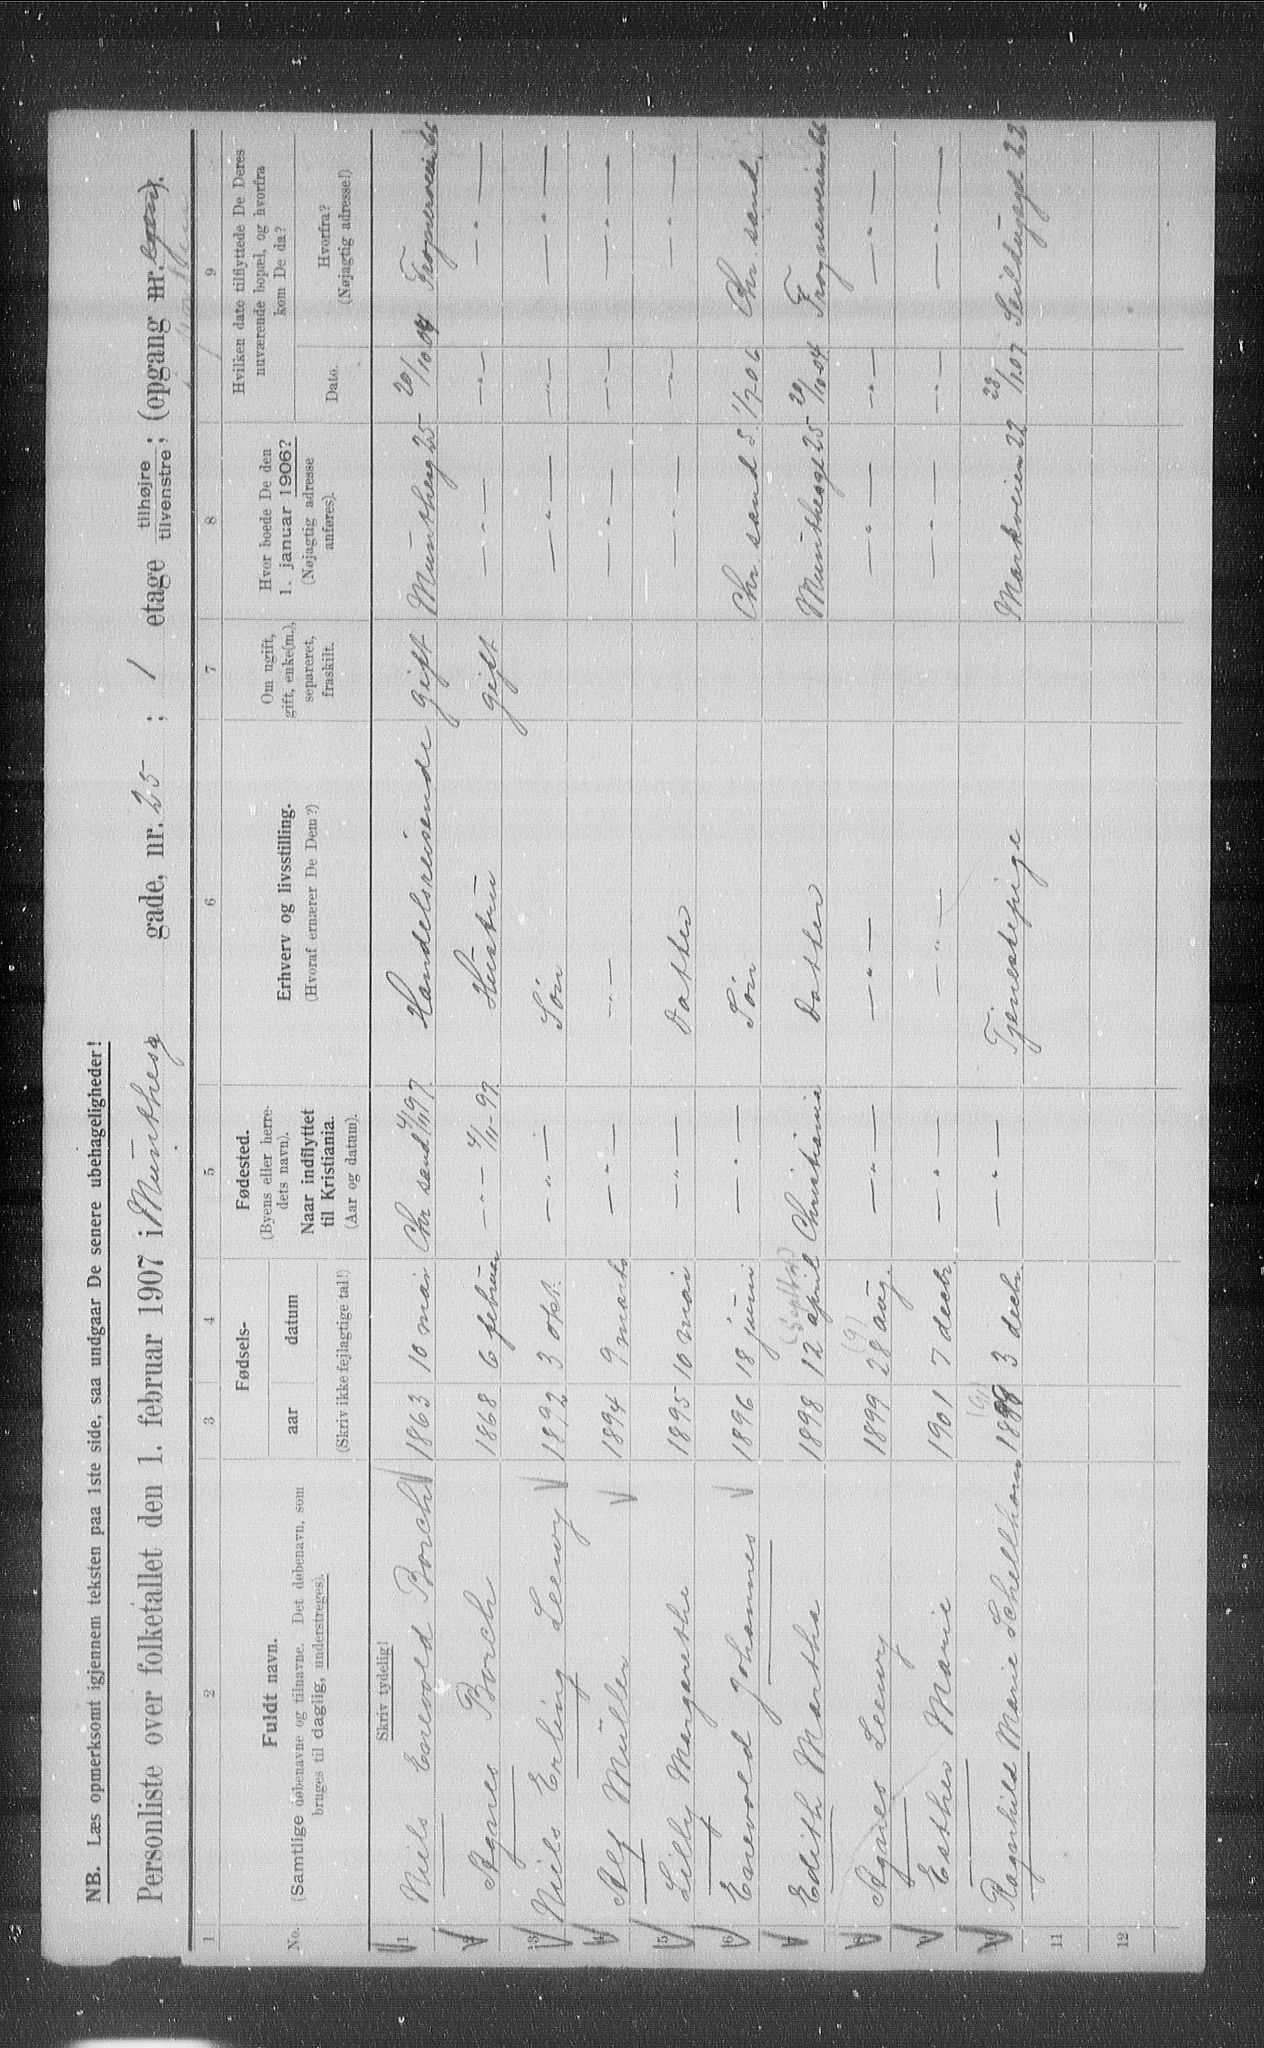 NB. Læs opmerksomt igjennem teksten paa 1ste side, saa undgaar De senere ubehageligheder!
Personliste over folketallet den 1. februar 1907 i Munthesg gade, nr. 25 ; 1 etage tilhøjre tilvenstre ; (opgang nr. ).
1 2 3 4 5 6 7 8 9
No. Fuldt navn. (Samtlige døbenavne og tilnavne. Det døbenavn, som bruges til daglig, understreges). Fødsels- aar datum (Skriv ikke fejlagtige tal!) Fødested. (Byens eller herredets navn). Naar indflyttet til Kristiania. (Aar og datum). Erhverv og livsstilling. (Hvoraf ernærer De Dem?) Om ugift, gift, enke(m.), separeret, fraskilt. Hvor boede De den 1. januar 1906? (Nøjagtig adresse anføres). Hvilken dato tilflyttede De Deres nuværende bopæl, og hvorfra kom De da? Dato. Hvorfra? (Nøjagtig adresse!)
Skriv tydelig!
1 Niels Enevold Borch 1863 10 mai Chr sand 4/11 97 Handelsreisende gift Muntheg 25 20/10 04 Frognerveien 66
2 Agnes Borch 1868 6 februar —„— 4/11 97 Hustru gift —„— —„— —„—
3 Niels Erling Leewy 1892 3 okt. —„— Sön —„— —„— —„—
4 Alf Müller 1894 9 marts —„— —„— —„— —„— —„—
5 Lilly Margarethe 1895 10 mai —„— Datter —„— —„— —„—
6 Enevold Johannes 1896 18 juni —„— Sön Chr sand S. 1/7 06 Chr sand.
7 Edith Martha 1898 12 april Christiania Datter Munthesgt 25 20/10 04 Frognerveien 66
8 Agnes Leewy 1899 28 aug. —„— —„— —„— —„— —„—
9 Esther Marie 1901 7 decbr. —„— —„— —„— —„— —„—
10 Ragnhild Marie Schellhorn 3 decbr. —„— Tjenestepige Markveien 22 28/1 07 Seildugsgd 22
11
12